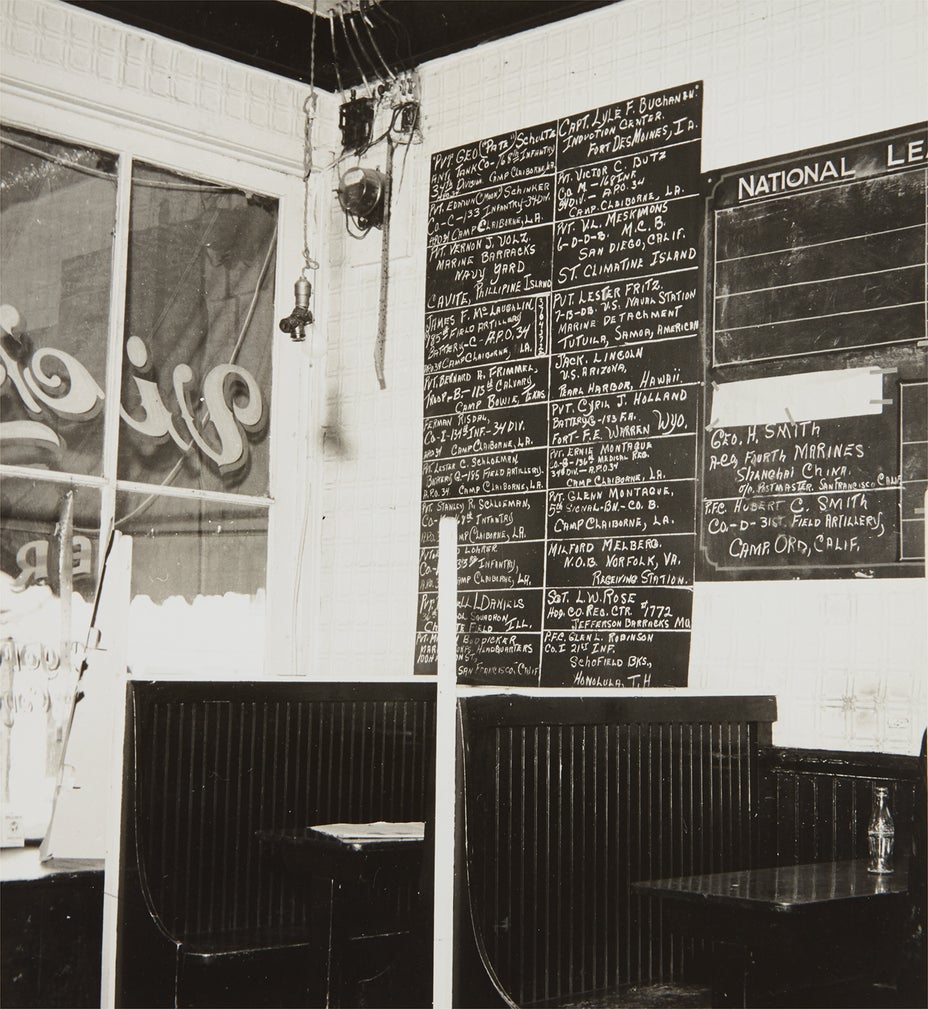 "PVT. GEO ("PATZ") SCHULTZ
ANTI TANK CO-168TH INFANTRY
34TH DIVISION CAMP CLAIBORNE, LA.
PVT. EDMUN SCHINKER
CO-C-133 INFANTRY-34 DIV.
APO 34 CAMP CLAIBORNE, LA.
PVT. VERNON J. VOLZ,
MARINE BARRACKS
NAVY YARD
CAVITE, PHILLIPINE ISLAND
JAMES F. MCLAUGHLIN
185TH FIELD ARTILLERY
BATTERY-C-A.P.O. 34
APO 34 CAMP CLAIBORNE, LA.
PVT. BERNARD A. FRIMMEL,
TROOP-B-113TH CALVARY
CAMP BOWIE, TEXAS
FERMAN RISDAL,
CO-I-134TH INF.-34 DIV.
APO 34 CAMP CLAIBORNE, LA.
PVT. LESTER C. SCHLOEMAN
BATTERY -185 FIELD ARTILLERY.
A.P.O. 34 CAMP CLAIBORNE, LA.
PVT. STANLEY R. SCHLOEMAN,
CO- INFANTRY
A.P.O. CAMP CLAIBORNE, LA.
LOHRER
CO- INFANTRY,
A.P.O. CAMP CLAIBORNE, LA.
PVT. L DANIELS
SQUADRON
FIELD ILL.
PVT. BODDICKER
HEADQUARTERS
SAN FRANCISCO, CALIF
CAPT. LYLE F. BUCHANAN"
INDUCTION CENTER.
FORT DES MOINES, IA.
PVT. VICTOR C. BUTZ
CO M-168 INF
34 DIV.-A.P.O. 34
CAMP CLAIBORNE, LA.
PVT. V.L. MESKIMONS
6-D-D-B M.C.B.
SAN DIEGO, CALIF.
ST. CLIMATINE ISLAND
PVT. LESTER FRITZ.
7-13-DB. U.S. NAVAL STATION
MARINE DETACHMENT
TUTUILA, SAMOA, AMERICAN
JACK. LINCOLN
U.S. ARIZONA,
PEARL HARBOR, HAWAII.
PVT. CYRIL J. HOLLAND
BATTERY G-183 F.A.
FORT-F.E. WARREN WYO.
PVT. ERNIE MONTAGUE
CO-B-136TH MEDICAL REG.
34TH DIV.-A.P.O. 34
CAMP CLAIBORNE, LA.
PVT. GLENN MONTAGUE,
5TH SIGNAL-BN-CO. B.
CAMP CLAIBORNE, LA.
MILFORD MELBERG.
N.O.B. NORFOLK, VA.
RECEIVING STATION.
SGT. L.W. ROSE
HDQ. CO. REC. CTR. #1772
JEFFERSON BARRACKS MO.
P.F.C. GLEN L. ROBINSON
CO. I 21ST INF.
SCHOFIELD BKS.,
HONOLULA, T.H.
NATIONAL LEA
GEO. H. SMITH
A-CO, FOURTH MARINES
SHANGHAI CHINA.
C/O. POSTMASTER. SAN FRANCISCO CALIF
P.F.C. HUBERT C. SMITH
CO.-D-31ST. FIELD ARTILLERY,
CAMP ORD, CALIF.